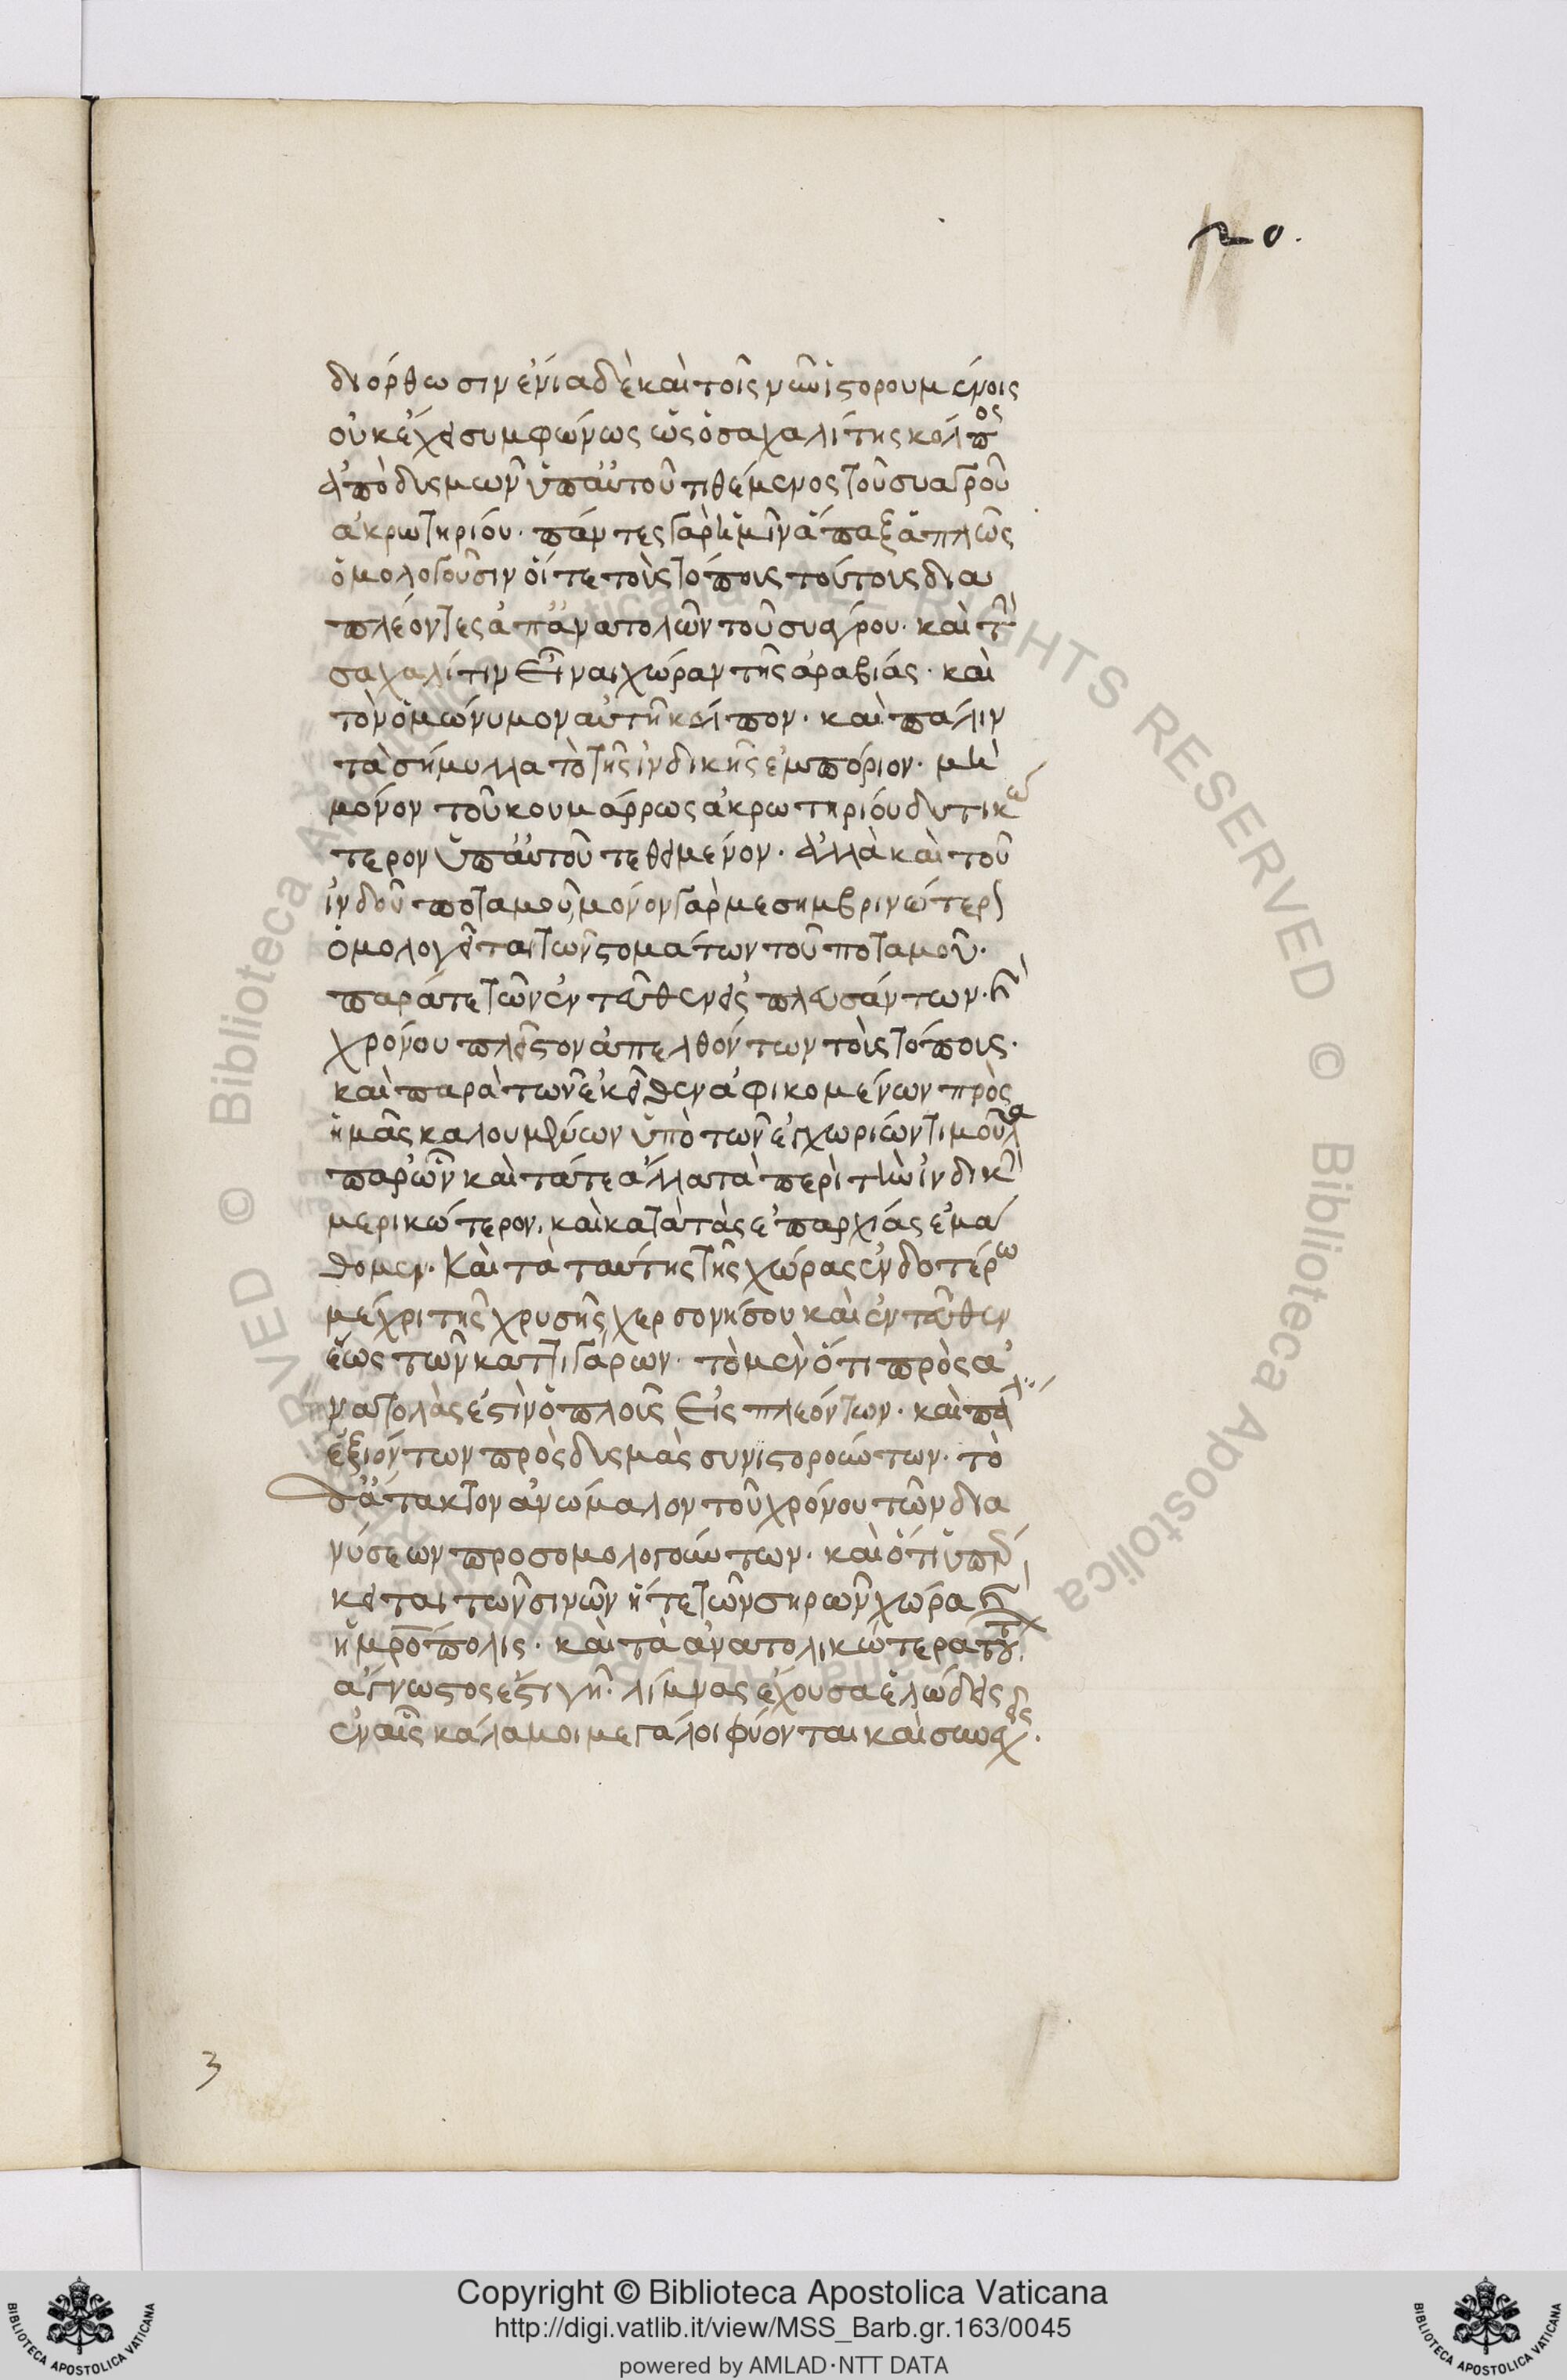 20.
διόρθωσιν ἔνια δὲ καὶ τοῖς νῦν ἱστορουμένοις
οὐκ ἔχει συμφώνως ὡς ὁ σαχαλίτης κόλπος
ἀπὸ δυσμῶν ὑπ' αὐτοῦ τιθέμενος τοῦ συάγρου
ἀκρωτηρίου. πάντες γὰρ ἡμῖν ἅπαξ ἁπλῶς
ὁμολογοῦσιν οἵ τε τοῖς τόποις τούτοις δια
πλέοντες ἀπ' ἀνατολῶν τοῦ συάγρου. καὶ τὴν
σαχαλίτιν εἶναι χώραν τῆς ἀραβίας. καὶ
τὸν ὁμώνυμον αὐτῆ κόλπον. καὶ πάλιν
τὰ σήμυλλα τὸ τῆς ἰνδικῆς ἐμπόριον. μὴ
μόνον τοῦ κουμάρρως ἀκρωτηρίου δυτικώ
τερον ὑπ' αὐτοῦ τεθειμένον. ἀλλὰ καὶ τοῦ
ἰνδοῦ ποταμοῦ, μόνον γὰρ μεσημβρινώτερον
ὁμολογεῖται τῶν στομάτων τοῦ ποταμοῦ.
παρά τε τῶν ἐντεῦθεν εἰσπλευσάντων. καὶ
χρόνου πλεῖστον ἀπελθόντων τοῖς τόποις.
καὶ παρὰ τῶν ἐκεῖθεν ἀφικομένων πρὸς
ἡμᾶς καλουμένων ὑπὸ τῶν ἐγχωρίων τιμοῦλα
παρ' ὧν καὶ τά τε ἄλλα τὰ περὶ τὴν ἰνδικὴν
μερικώτερον, καὶ κατὰ τὰς ἐπαρχίας ἐμά
θομεν. Καὶ τὰ ταύτης τῆς χώρας ἐνδοτέρω
μέχρι τῆς χρυσῆς χερσονήσου καὶ ἐντεῦθεν
ἕως τῶν καττιγάρων. τὸ μὲν ὅτι πρὸς ἀ
νατολάς ἐστὶν ὁ πλοῦς εἰσπλεόντων. καὶ πάλιν
ἐξιόντων πρὸς δυσμὰς συνιστορούντων. τὸ
δ' ἄτακτον ἀνώμαλον τοῦ χρόνου τῶν δια
νύσεων προσομολογούντων. καὶ ὅτι ὑπερ
κειται τῶν σινῶν ἥ τε τῶν σηρῶν χώρα καὶ
ἡ μρόπολις. καὶ τὰ ἀνατολικώτερα τούτων
ἄγνωστος ἐστι γῆ. λίμνας ἔχουσα ἑλώδεις
ἐν αἷς κάλαμοι μεγάλοι φύονται καὶ συνεχεῖς.
3
Copyright © Biblioteca Apostolica Vaticana
http://digi.vatlib.it/view/MSS_Barb.gr.163/0045
powered by AMLAD·NTT DATA